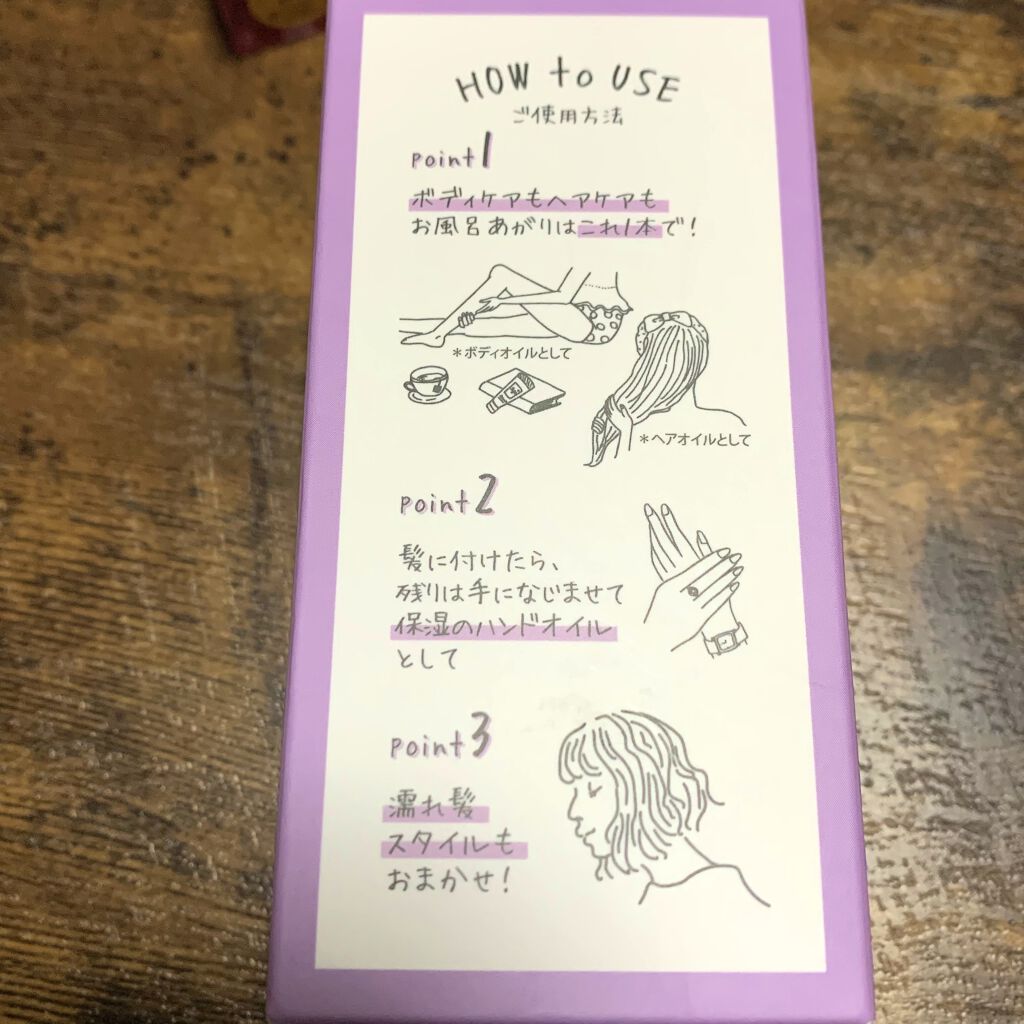 HOW to USE
ご使用方法
point1
ボディケアもヘアケアも
お風呂あがりはこれ1本で!
*ボディオイルとして
*ヘアオイルとして
point2
髪に付けたら、
残りは手になじませて
保湿のハンドオイル
として
point3
濡れ髪
スタイルも
おまかせ!